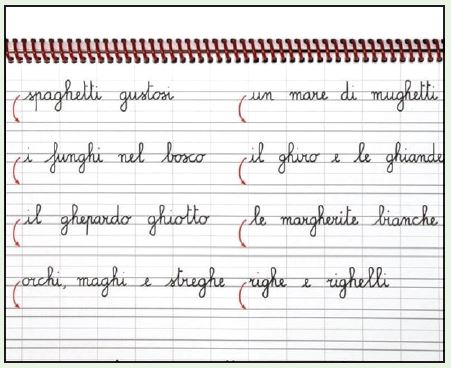 spaghetti gustosi
un mare di mughetti
i funghi nel bosco
il ghiro e le ghiande
il ghepardo ghiotto
le margherite bianche
orchi, maghi e streghe
righe e righelli